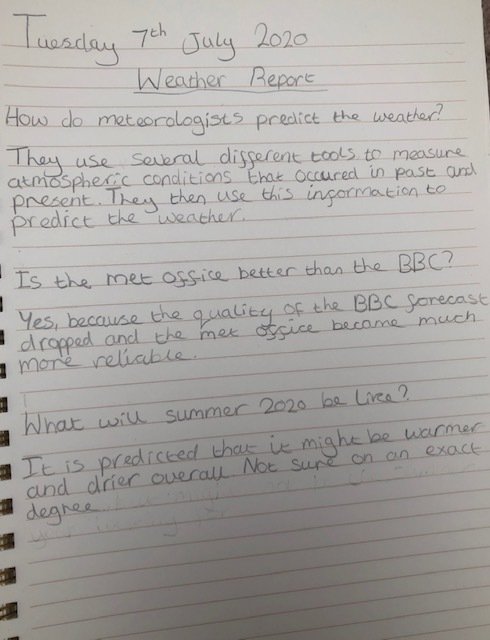 Tuesday 7th July 2020
Weather Report
How do meteorologists predict the weather?
They use several different tools to measure
atmospheric conditions that occured in past and
present. They then use this information to
predict the weather.
Is the met office better than the BBC?
Yes, because the quality of the BBC forecast
dropped and the met office became much
more reliable.
What will summer 2020 be like?
It is predicted that it might be warmer
and drier overall. Not sure on an exact
degree